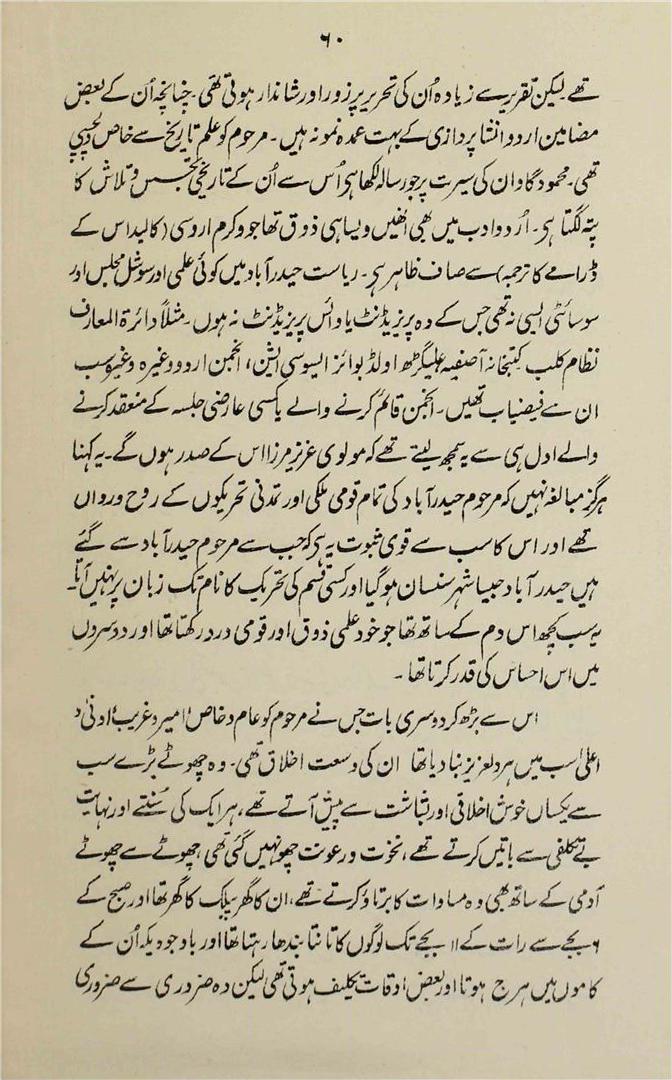 ۶۰
تھے لیکن تقریر سے زیادہ اُن کی تحریر پر زور اور شاندار ہوتی تھی۔ چنانچہ اُن کے بعض
مضامین اردو انشا پردازی کے بہت عمدہ نمونہ ہیں۔ مرحوم کو علم تاریخ سے خاص دلچسپی
تھی۔ محمود گاوان کی سیرت پر جو رسالہ لکھا ہی اُس سے اُن کے تاریخی تجسس و تلاش کا
پتہ لگتا ہی۔ اُردو ادب میں بھی اُنھیں ویسا ہی ذوق تھا جو وکرم اروسی (کالیداس کے
ڈرامے کا ترجمہ) سے صاف ظاہر ہی۔ ریاست حیدرآباد میں کوئی علمی اور سوشل مجلس اور
سوسائٹی ایسی نہ تھی جس کے وہ پریزیڈنٹ یا وائس پریزیڈنٹ نہ ہوں۔ مثلاً دائرۃ المعارف
نظام کلب کتبخانہ آصفیہ علیگڑھ اولڈ بوائز ایسوسی ایشن، انجمن اردو وغیرہ وغیرہ سب
ان سے فیضیاب تھیں۔ انجمن قائم کرنے والے یا کسی عارضی جلسہ کے منعقد کرنے
والے اول ہی سے یہ سمجھ لیتے تھے کہ مولوی عزیز مرزا اس کے صدر ہوں گے۔ یہ کہنا
ہرگز مبالغہ نہیں کہ مرحوم حیدرآباد کی تمام قومی ملکی اور تمدنی تحریکوں کے روح و رواں
تھے اور اس کا سب سے قوی ثبوت یہ ہی کہ جب سے مرحوم حیدرآباد سے گئے
ہیں حیدرآباد جیسا شہر سنسان ہو گیا اور کسی قسم کی تحریک کا نام تک زبان پر نہیں آتا۔
یہ سب کچھ اس دم کے ساتھ تھا جو خود علمی ذوق اور قومی درد رکھتا تھا اور دوسروں
میں اس احساس کی قدر کرتا تھا۔
اس سے بڑھ کر دوسری بات جس نے مرحوم کو عام و خاص امیر و غریب ادنیٰ و
اعلیٰ سب میں ہر دلعزیز بنا دیا تھا ان کی وسعت اخلاق تھی۔ وہ چھوٹے بڑے سب
سے یکساں خوش اخلاقی اور بشاشت سے پیش آتے تھے، ہر ایک کی سُنتے اور نہایت
بے تکلفی سے باتیں کرتے تھے، نخوت و رعونت چھو نہیں گئی تھی، چھوٹے سے چھوٹے
آدمی کے ساتھ بھی وہ مساوات کا برتاؤ کرتے تھے، ان کا گھر پبلک کا گھر تھا اور صبح کے
۶ بجے سے رات کے ۱۱ بجے تک لوگوں کا تانتا بندھا رہتا تھا اور باوجودیکہ اُن کے
کاموں میں ہرج ہوتا اور بعض اوقات تکلیف ہوتی تھی لیکن وہ ضروری سے ضروری